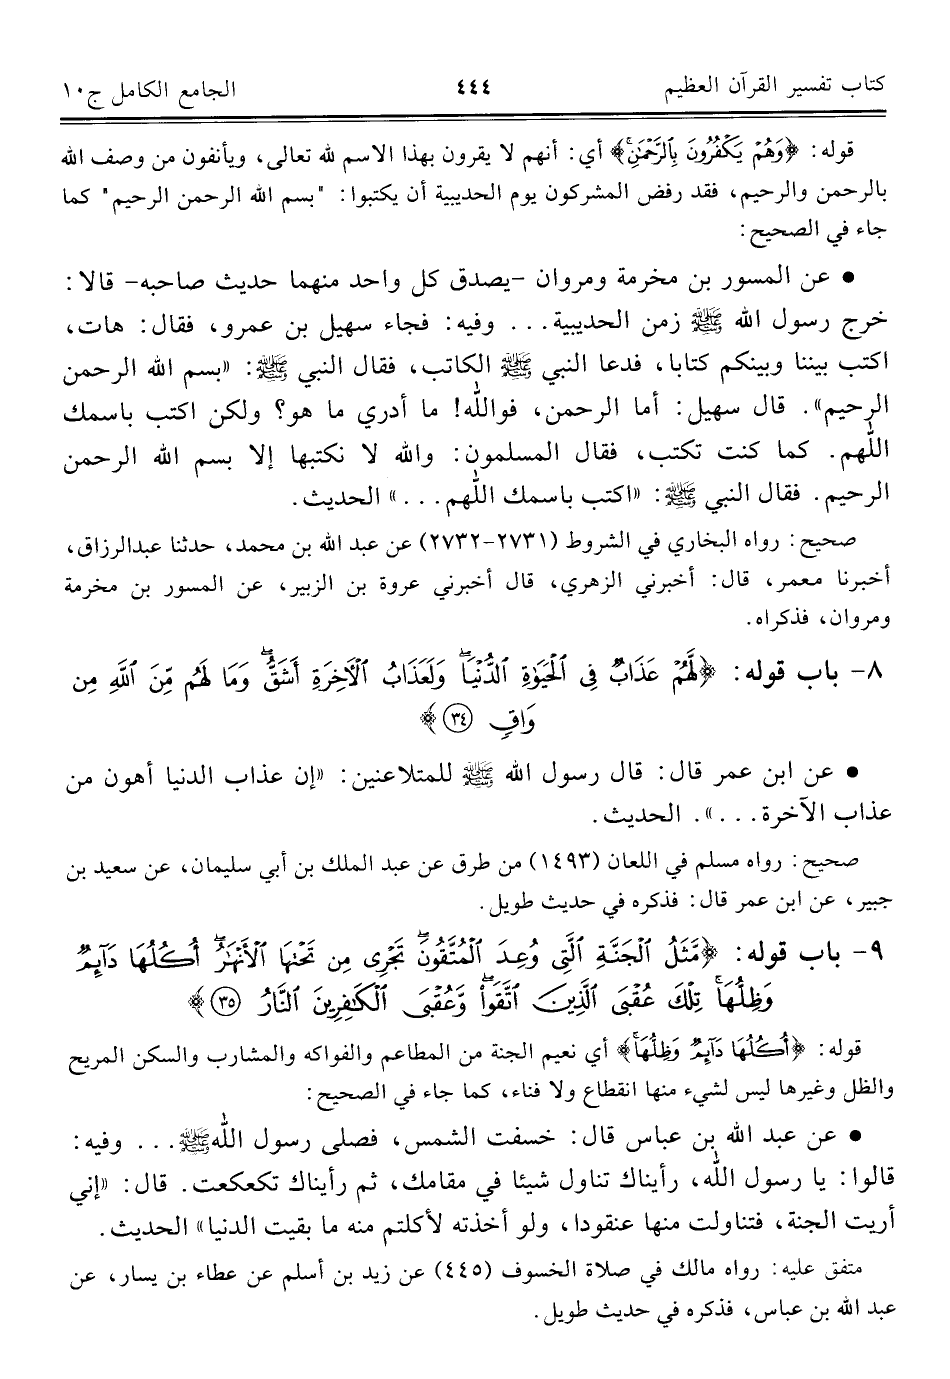 كتاب تفسير القرآن العظيم ٤٤٤ الجامع الكامل ج١٠
قوله: ﴿وَهُمْ يَكْفُرُونَ بِالرَّحْمَٰنِ﴾ أي: أنهم لا يقرون بهذا الاسم لله تعالى، ويأنفون من وصف الله
بالرحمن والرحيم، فقد رفض المشركون يوم الحديبية أن يكتبوا: "بسم الله الرحمن الرحيم" كما
جاء في الصحيح:
• عن المسور بن مخرمة ومروان -يصدق كل واحد منهما حديث صاحبه- قالا:
خرج رسول الله ﷺ زمن الحديبية... وفيه: فجاء سهيل بن عمرو، فقال: هات،
اكتب بيننا وبينكم كتابا، فدعا النبي ﷺ الكاتب، فقال النبي ﷺ: «بسم الله الرحمن
الرحيم». قال سهيل: أما الرحمن، فوالله! ما أدري ما هو؟ ولكن اكتب باسمك
اللهم. كما كنت تكتب، فقال المسلمون: والله لا نكتبها إلا بسم الله الرحمن
الرحيم. فقال النبي ﷺ: «اكتب باسمك اللهم...» الحديث.
صحيح: رواه البخاري في الشروط (٢٧٣١-٢٧٣٢) عن عبد الله بن محمد، حدثنا عبدالرزاق،
أخبرنا معمر، قال: أخبرني الزهري، قال أخبرني عروة بن الزبير، عن المسور بن مخرمة
ومروان، فذكراه.
٨- باب قوله: ﴿لَّهُمْ عَذَابٌ فِي الْحَيَوٰةِ الدُّنْيَا ۖ وَلَعَذَابُ الْآخِرَةِ أَشَقُّ ۖ وَمَا لَهُم مِّنَ اللَّهِ مِن
وَاقٍ ٣٤﴾
• عن ابن عمر قال: قال رسول الله ﷺ للمتلاعنين: «إن عذاب الدنيا أهون من
عذاب الآخرة...». الحديث.
صحيح: رواه مسلم في اللعان (١٤٩٣) من طرق عن عبد الملك بن أبي سليمان، عن سعيد بن
جبير، عن ابن عمر قال: فذكره في حديث طويل.
٩- باب قوله: ﴿مَّثَلُ الْجَنَّةِ الَّتِي وُعِدَ الْمُتَّقُونَ ۖ تَجْرِي مِن تَحْتِهَا الْأَنْهَٰرُ ۖ أُكُلُهَا دَآئِمٌ
وَظِلُّهَا ۚ تِلْكَ عُقْبَى الَّذِينَ اتَّقَوا ۖ وَّعُقْبَى الْكَٰفِرِينَ النَّارُ ٣٥﴾
قوله: ﴿أُكُلُهَا دَآئِمٌ وَظِلُّهَا ۚ﴾ أي نعيم الجنة من المطاعم والفواكه والمشارب والسكن المريح
والظل وغيرها ليس لشيء منها انقطاع ولا فناء، كما جاء في الصحيح:
• عن عبد الله بن عباس قال: خسفت الشمس، فصلى رسول الله ﷺ... وفيه:
قالوا: يا رسول الله، رأيناك تناول شيئا في مقامك، ثم رأيناك تكعكعت. قال: «إني
أريت الجنة، فتناولت منها عنقودا، ولو أخذته لأكلتم منه ما بقيت الدنيا» الحديث.
متفق عليه: رواه مالك في صلاة الخسوف (٤٤٥) عن زيد بن أسلم عن عطاء بن يسار، عن
عبد الله بن عباس، فذكره في حديث طويل.